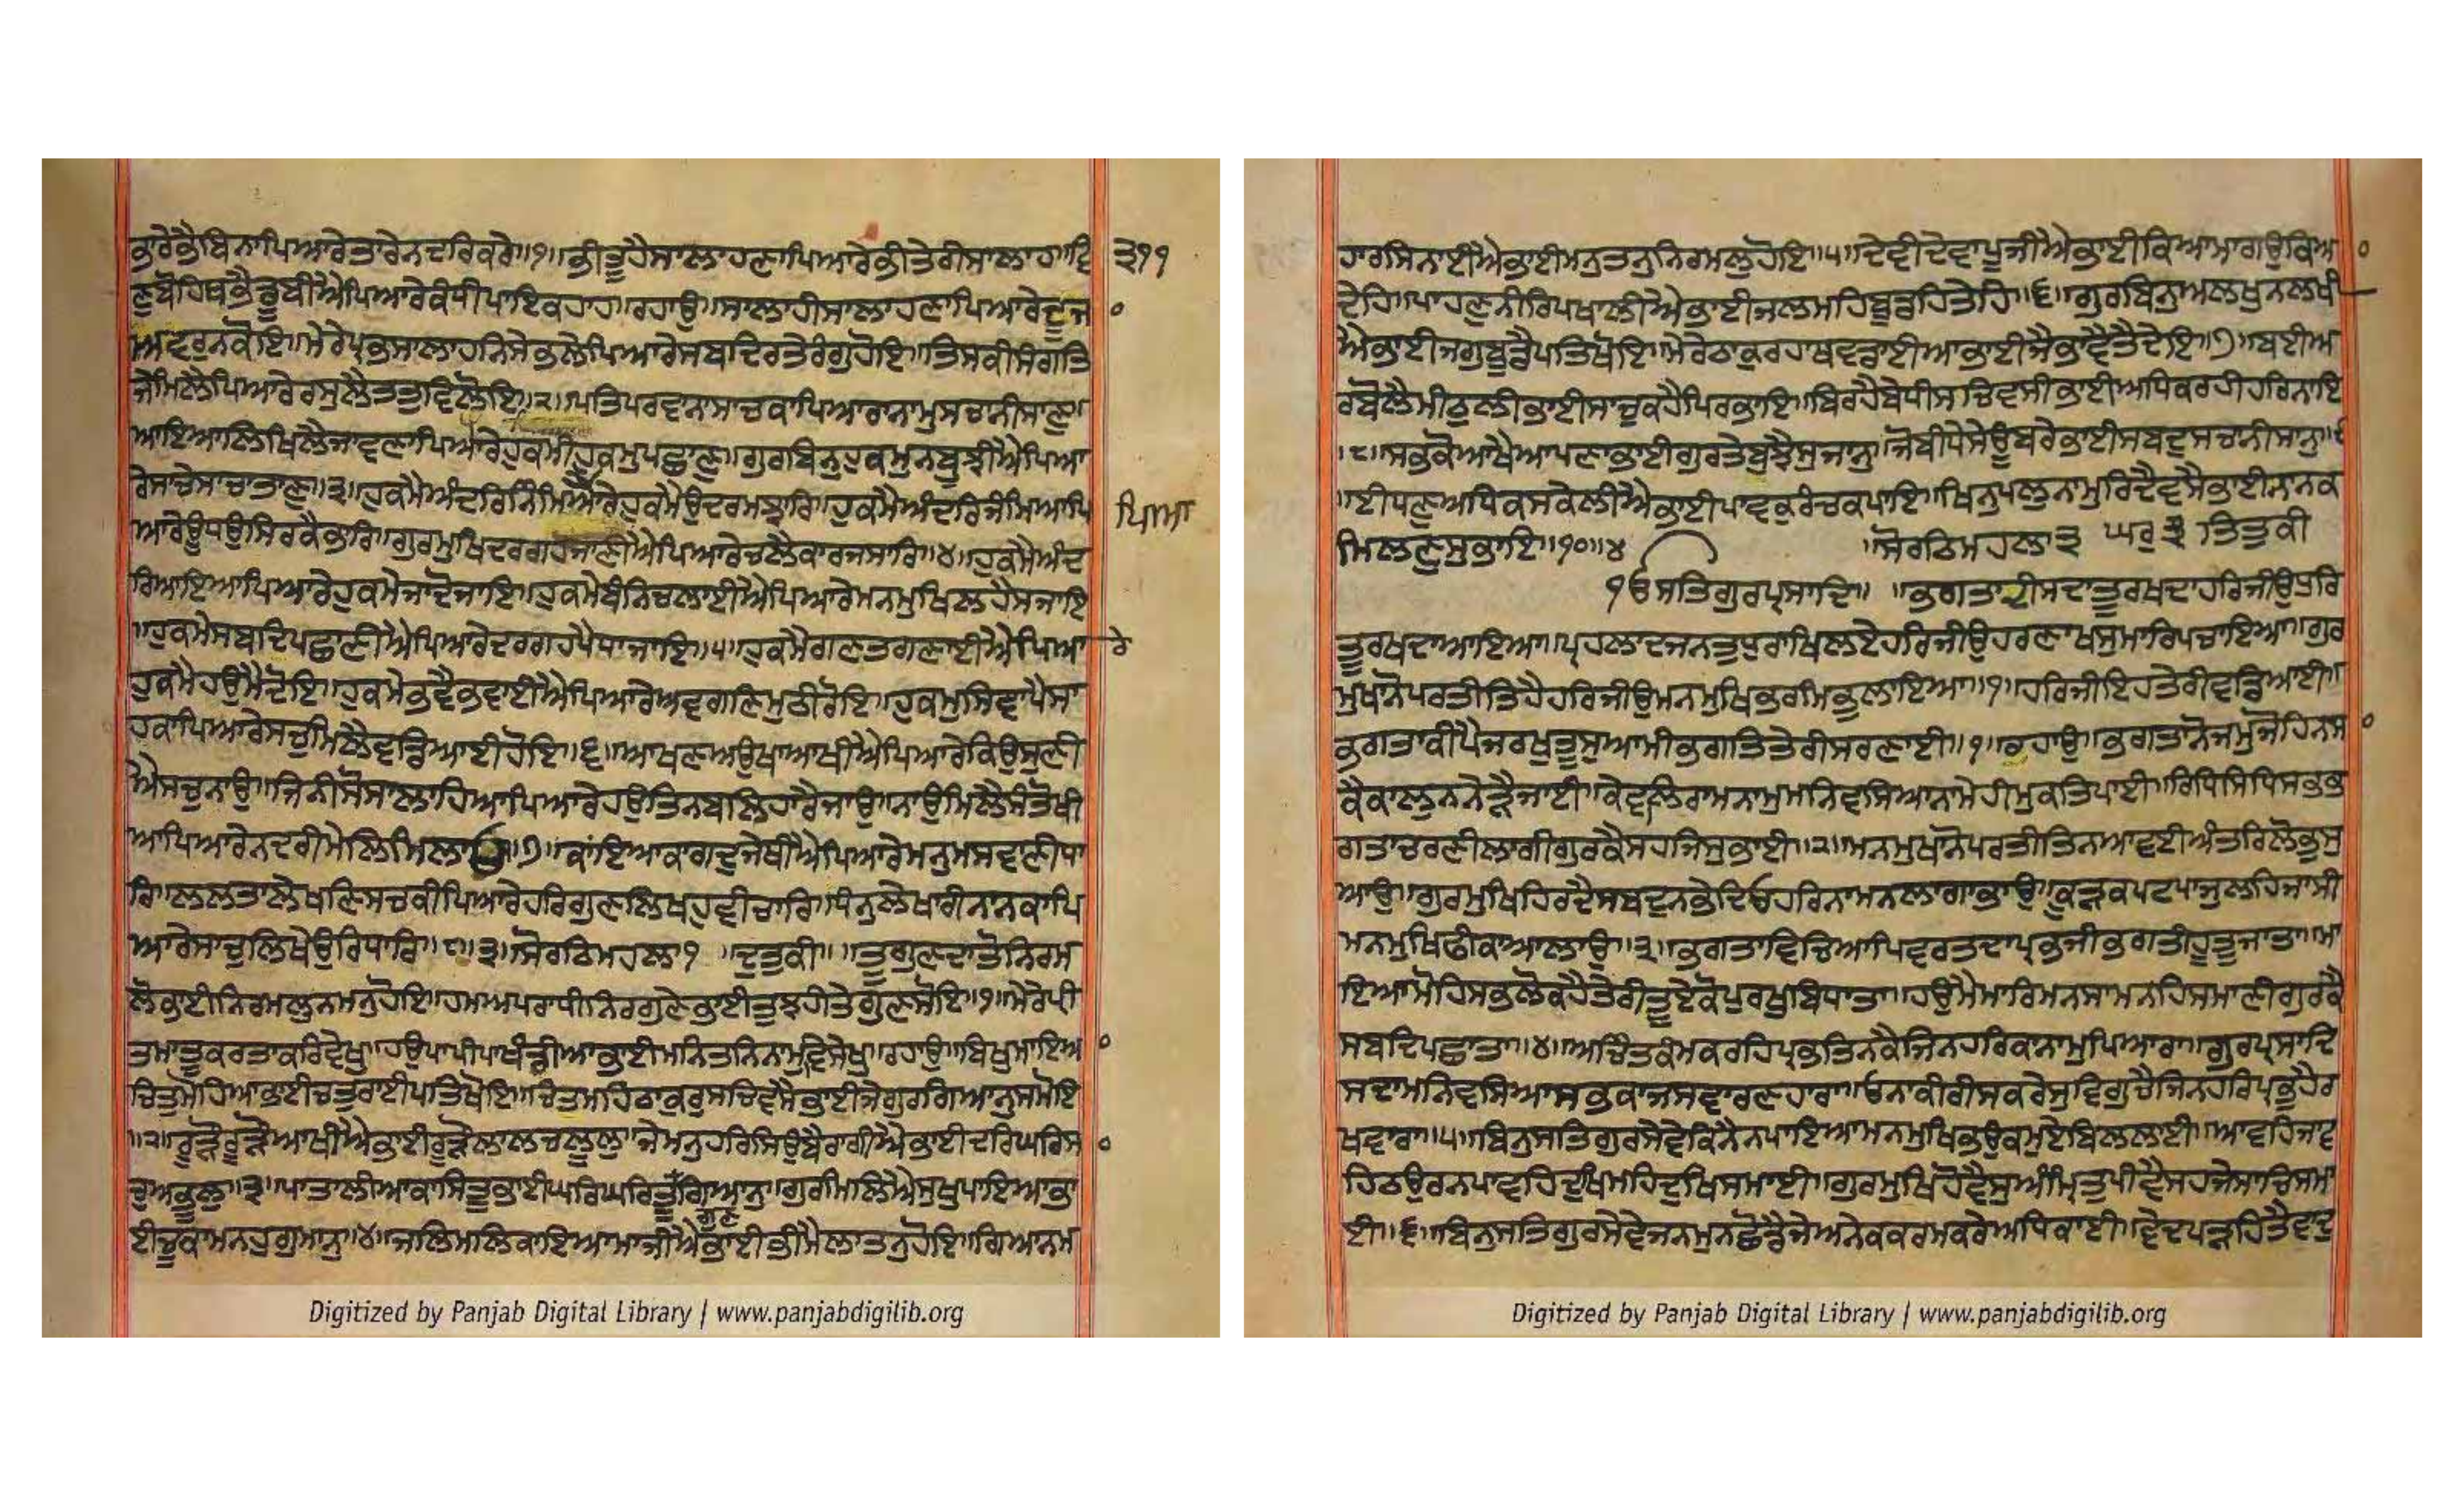 ਭਾਰੇਭੈਬਿਨਾਪਿਆਰੇਤਾਰੇਨਦਰਿਕਰੇ॥੧॥ਭੀਤੂਹੈਸਾਲਾਹਣਾਪਿਆਰੇਭੀਤੇਰੀਸਾਲਾਹ॥ਵਿ
੩੧੧
ਣੁਬੋਹਿਥਭੈਡੂਬੀਐਪਿਆਰੇਕੰਧੀਪਾਇਕਹਾਹ॥ਰਹਾਉ॥ਸਾਲਾਹੀਸਾਲਾਹਣਾਪਿਆਰੇਦੂਜ
ਅਵਰੁਨਕੋਇ॥ਮੇਰੇਪ੍ਰਭੁਸਾਲਾਹਨਿਸੇਭਲੇਪਿਆਰੇਸਬਦਿਰਤੇਰੰਗੁਹੋਇ॥ਤਿਸਕੀਸੰਗਤਿ
ਜੇਮਿਲੈਪਿਆਰੇਰਸੁਲੈਤਤੁਵਿਲੋਇ॥੨॥ਪਤਿਪਰਵਾਨਾਸਾਚਕਾਪਿਆਰਾਨਾਮੁਸਚਾਨੀਸਾਣੁ॥
ਆਇਆਲਿਖਿਲੈਜਾਵਣਾਪਿਆਰੇਹੁਕਮੀਹੁਕਮੁਪਛਾਣੁ॥ਗੁਰਬਿਨੁਹੁਕਮੁਨਬੂਝੀਐਪਿਆ
ਰੇਸਾਚੇਸਾਚਾਤਾਣੁ॥੩॥ਹੁਕਮੈਅੰਦਰਿਨਿੰਮਿਆਰੇਹੁਕਮੈਉਦਰਮਝਾਰਿ॥ਹੁਕਮੈਅੰਦਰਿਜੰਮਿਆਪਿ
ਪਿਆ
ਆਰੇਊਧਉਸਿਰਕੈਭਾਰਿ॥ਗੁਰਮੁਖਿਦਰਗਹਜਾਣੀਐਪਿਆਰੇਚਲੈਕਾਰਜਸਾਰਿ॥੪॥ਹੁਕਮੈਅੰਦ
ਰਿਆਇਆਪਿਆਰੇਹੁਕਮੇਜਾਦੋਜਾਇ॥ਹੁਕਮੇਬੰਨਿਚਲਾਈਐਪਿਆਰੇਮਨਮੁਖਿਲਹੈਸਜਾਇ
॥ਹੁਕਮੇਸਬਦਿਪਛਾਣੀਐਪਿਆਰੇਦਰਗਹਪੈਧਾਜਾਇ॥੫॥ਹੁਕਮੈਗਣਤਗਣਾਈਐਪਿਆਰੇ
ਹੁਕਮੈਹਉਮੈਦੋਇ॥ਹੁਕਮੇਭਵੈਭਵਾਈਐਪਿਆਰੇਅਵਗਣਿਮੁਠੀਰੋਇ॥ਹੁਕਮੁਸਿਞਾਪੈਸਾ
ਹਕਾਪਿਆਰੇਸਚੁਮਿਲੈਵਡਿਆਈਹੋਇ॥੬॥ਆਖਣਅਉਖਾਆਖੀਐਪਿਆਰੇਕਿਉਸੁਣੀ
ਐਸਚੁਨਾਉ॥ਜਿਨੀਸੋਸਾਲਾਹਿਆਪਿਆਰੇਹਉਤਿਨਬਲਿਹਾਰੈਜਾਉ॥ਨਾਉਮਿਲੈਸੰਤੋਖੀ
ਆਪਿਆਰੇਨਦਰੀਮੇਲਿਮਿਲਾਉ॥੭॥ਕਾਂਇਆਕਾਗਦੁਜੇਥੀਐਪਿਆਰੇਮਨੁਮਸਵਾਣੀਧਾ
ਰਿ॥ਲਲਤਾਲੇਖਣਿਸਚਕੀਪਿਆਰੇਹਰਿਗੁਣਲਿਖਹੁਵੀਚਾਰਿ॥ਧੰਨੁਲੇਖਾਰੀਨਾਨਕਾਪਿ
ਆਰੇਸਾਚੁਲਿਖੇਉਰਿਧਾਰਿ॥੮॥੩॥ਸੋਰਠਿਮਹਲਾ੧ ॥ਦੁਤੁਕੀ॥ ॥ਤੂਗੁਣਦਾਤੋਨਿਰਮ
ਲੋਭਾਈਨਿਰਮਲੁਨਮਨੁਹੋਇ॥ਹਮਅਪਰਾਧੀਨਿਰਗੁਣੇਭਾਈਤੁਝਹੀਤੇਗੁਣਸੋਇ॥੧॥ਮੇਰੇਪ੍ਰੀ
ਤਮਾਤੂਕਰਤਾਕਰਿਵੇਖੁ॥ਹਉਪਾਪੀਪਾਖੰਡੀਆਭਾਈਮਨਿਤਨਿਨਾਮੁਵਿਸੇਖੁ॥ਰਹਾਉ॥ਬਿਖੁਮਾਇਆ
ਚਿਤੁਮੋਹਿਆਭਾਈਚਤੁਰਾਈਪਤਿਖੋਇ॥ਚਿਤਮਹਿਠਾਕੁਰੁਸਚਿਵਸੈਭਾਈਜੇਗੁਰਗਿਆਨੁਸਮੋਇ
॥੨॥ਰੂੜੌਰੂੜੌਆਖੀਐਭਾਈਰੂੜੌਲਾਲਚਲੂਲੁ॥ਜੇਮਨੁਹਰਿਸਿਉਬੈਰਾਗੀਐਭਾਈਦਰਿਘਰਿਸ
ਚੁਅਭੂਲੁ॥੩॥ਪਾਤਾਲੀਆਕਾਸਿਤੂਭਾਈਘਰਿਘਰਿਤੂੰਗਿਆਨੁ॥ਗੁਰਿਮਿਲਿਐਸੁਖੁਪਾਇਆਭਾ
ਗੁਣ
ਈਚੂਕਾਮਨਹੁਗੁਮਾਨੁ॥੪॥ਜਲਿਮਲਿਕਾਇਆਮਾਜੀਐਭਾਈਭੀਮੈਲਾਤਨੁਹੋਇ॥ਗਿਆਨਮ
ਹਾਰਸਿਨਾਈਐਭਾਈਮਨੁਤਨੁਨਿਰਮਲੁਹੋਇ॥੫॥ਦੇਵੀਦੇਵਾਪੂਜੀਐਭਾਈਕਿਆਮਾਗਉਕਿਆ
ਦੇਹਿ॥ਪਾਹਣੁਨੀਰਿਪਖਾਲੀਐਭਾਈਜਲਮਹਿਬੂਡਹਿਤੇਹਿ॥੬॥ਗੁਰਬਿਨੁਅਲਖੁਨਲਖੀ
ਐਭਾਈਜਗੁਬੂਡੈਪਤਿਖੋਇ॥ਮੇਰੇਠਾਕੁਰਹਾਥਵਡਾਈਆਭਾਈਜੈਭਾਵੈਤੈਦੇਇ॥੭॥ਬਈਅ
ਰਿਬੋਲੈਮੀਠੁਲੀਭਾਈਸਾਚੁਕਹੈਪਿਰਭਾਇ॥ਬਿਰਹੈਬੇਧੀਸਚਿਵਸੀਭਾਈਅਧਿਕਰਹੀਹਰਿਨਾਇ
॥੮॥ਸਭੁਕੋਆਖੈਆਪਣਾਭਾਈਗੁਰਤੇਬੁਝੈਸੁਜਾਨੁ॥ਜੋਬੀਧੇਸੇਊਬਰੇਭਾਈਸਬਦੁਸਚਾਨੀਸਾਨੁ॥੯
॥ਈਧਣੁਅਧਿਕਸਕੇਲੀਐਭਾਈਪਾਵਕੁਰੰਚਕਪਾਇ॥ਖਿਨੁਪਲੁਨਾਮੁਰਿਦੈਵਸੈਭਾਈਨਾਨਕ
ਮਿਲਣੁਸੁਭਾਇ॥੧੦॥੪ ॥ਸੋਰਠਿਮਹਲਾ੩ ਘਰੁ੩ ਤਿਤੁਕੀ
ੴਸਤਿਗੁਰਪ੍ਰਸਾਦਿ॥ ॥ਭਗਤਾਦੀਸਦਾਤੂਰਖਦਾਹਰਿਜੀਉਧੁਰਿ
ਤੂਰਖਦਾਆਇਆ॥ਪ੍ਰਹਲਾਦਜਨਤੁਧੁਰਾਖਿਲਏਹਰਿਜੀਉਹਰਣਾਖਸੁਮਾਰਿਪਚਾਇਆ॥ਗੁਰ
ਮੁਖਾਨੋਪਰਤੀਤਿਹੈਹਰਿਜੀਉਮਨਮੁਖਿਭਰਮਿਭੁਲਾਇਆ॥੧॥ਹਰਿਜੀਇਹਤੇਰੀਵਡਿਆਈ॥
ਭਗਤਾਕੀਪੈਜਰਖੁਤੂਸੁਆਮੀਭਗਤਿਤੇਰੀਸਰਣਾਈ॥੧॥ਰਹਾਉ॥ਭਗਤਾਨੋਜਮੁਜੋਹਿਨਸ
ਕੈਕਾਲੁਨਨੇੜੈਜਾਈ॥ਕੇਵਲਿਰਾਮਨਾਮੁਮਨਿਵਸਿਆਨਾਮੇਹੀਮੁਕਤਿਪਾਈ॥ਰਿਧਿਸਿਧਿਸਭਭ
ਗਤਾਚਰਣੀਲਾਗੀਗੁਰਕੈਸਹਜਿਸੁਭਾਈ॥੨॥ਮਨਮੁਖਾਨੋਪਰਤੀਤਿਨਆਵਈਅੰਤਰਿਲੋਭੁਸੁ
ਆਉ॥ਗੁਰਮੁਖਿਹਿਰਦੈਸਬਦੁਨਭੇਦਿਓਹਰਿਨਾਮਨਲਾਗਾਭਾਉ॥ਕੂੜਕਪਟਪਾਜੁਲਹਿਜਾਸੀ
ਮਨਮੁਖਿਫੀਕਾਆਲਾਉ॥੩॥ਭਗਤਾਵਿਚਿਆਪਿਵਰਤਦਾਪ੍ਰਭਜੀਭਗਤੀਹੂਤੂਜਾਤਾ॥ਮਾ
ਇਆਮੋਹਿਸਭਲੋਕਹੈਤੇਰੀਤੂਏਕੋਪੁਰਖੁਬਿਧਾਤਾ॥ਹਉਮੈਮਾਰਿਮਨਸਾਮਨਹਿਸਮਾਣੀਗੁਰਕੈ
ਸਬਦਿਪਛਾਤਾ॥੪॥ਅਚਿੰਤਕੰਮਕਰਹਿਪ੍ਰਭਤਿਨਕੈਜਿਨਹਰਿਕਾਨਾਮੁਪਿਆਰਾ॥ਗੁਰਪ੍ਰਸਾਦਿ
ਸਦਾਮਨਿਵਸਿਆਸਭਕਾਜਸਵਾਰਣਹਾਰਾ॥ਓਨਾਕੀਰੀਸਕਰੇਸੁਵਿਗੁਚੈਜਿਨਹਰਿਪ੍ਰਭੁਹੈਰ
ਖਵਾਰਾ॥੫॥ਬਿਨੁਸਤਿਗੁਰਸੇਵੇਕਿਨੈਨਪਾਇਆਮਨਮੁਖਿਭਉਕਿਮੁਏਬਿਲਲਾਈ॥ਆਵਹਿਜਾਵ
ਹਿਠਉਰਨਪਾਵਹਿਦੁਖਮਹਿਦੁਖਿਸਮਾਈ॥ਗੁਰਮੁਖਿਹੋਵੈਸੁਅੰਮ੍ਰਿਤੁਪੀਵੈਸਹਜੇਸਾਚਿਸਮਾ
ਈ॥੬॥ਬਿਨੁਸਤਿਗੁਰਸੇਵੇਜਨਮੁਨਛੋਡੈਜੇਅਨੇਕਕਰਮਕਰੇਅਧਿਕਾਈ॥ਵੇਦਪੜਹਿਤੈਵਾਦੁ
Digitized by Panjab Digital Library | www.panjabdigilib.org
Digitized by Panjab Digital Library | www.panjabdigilib.org